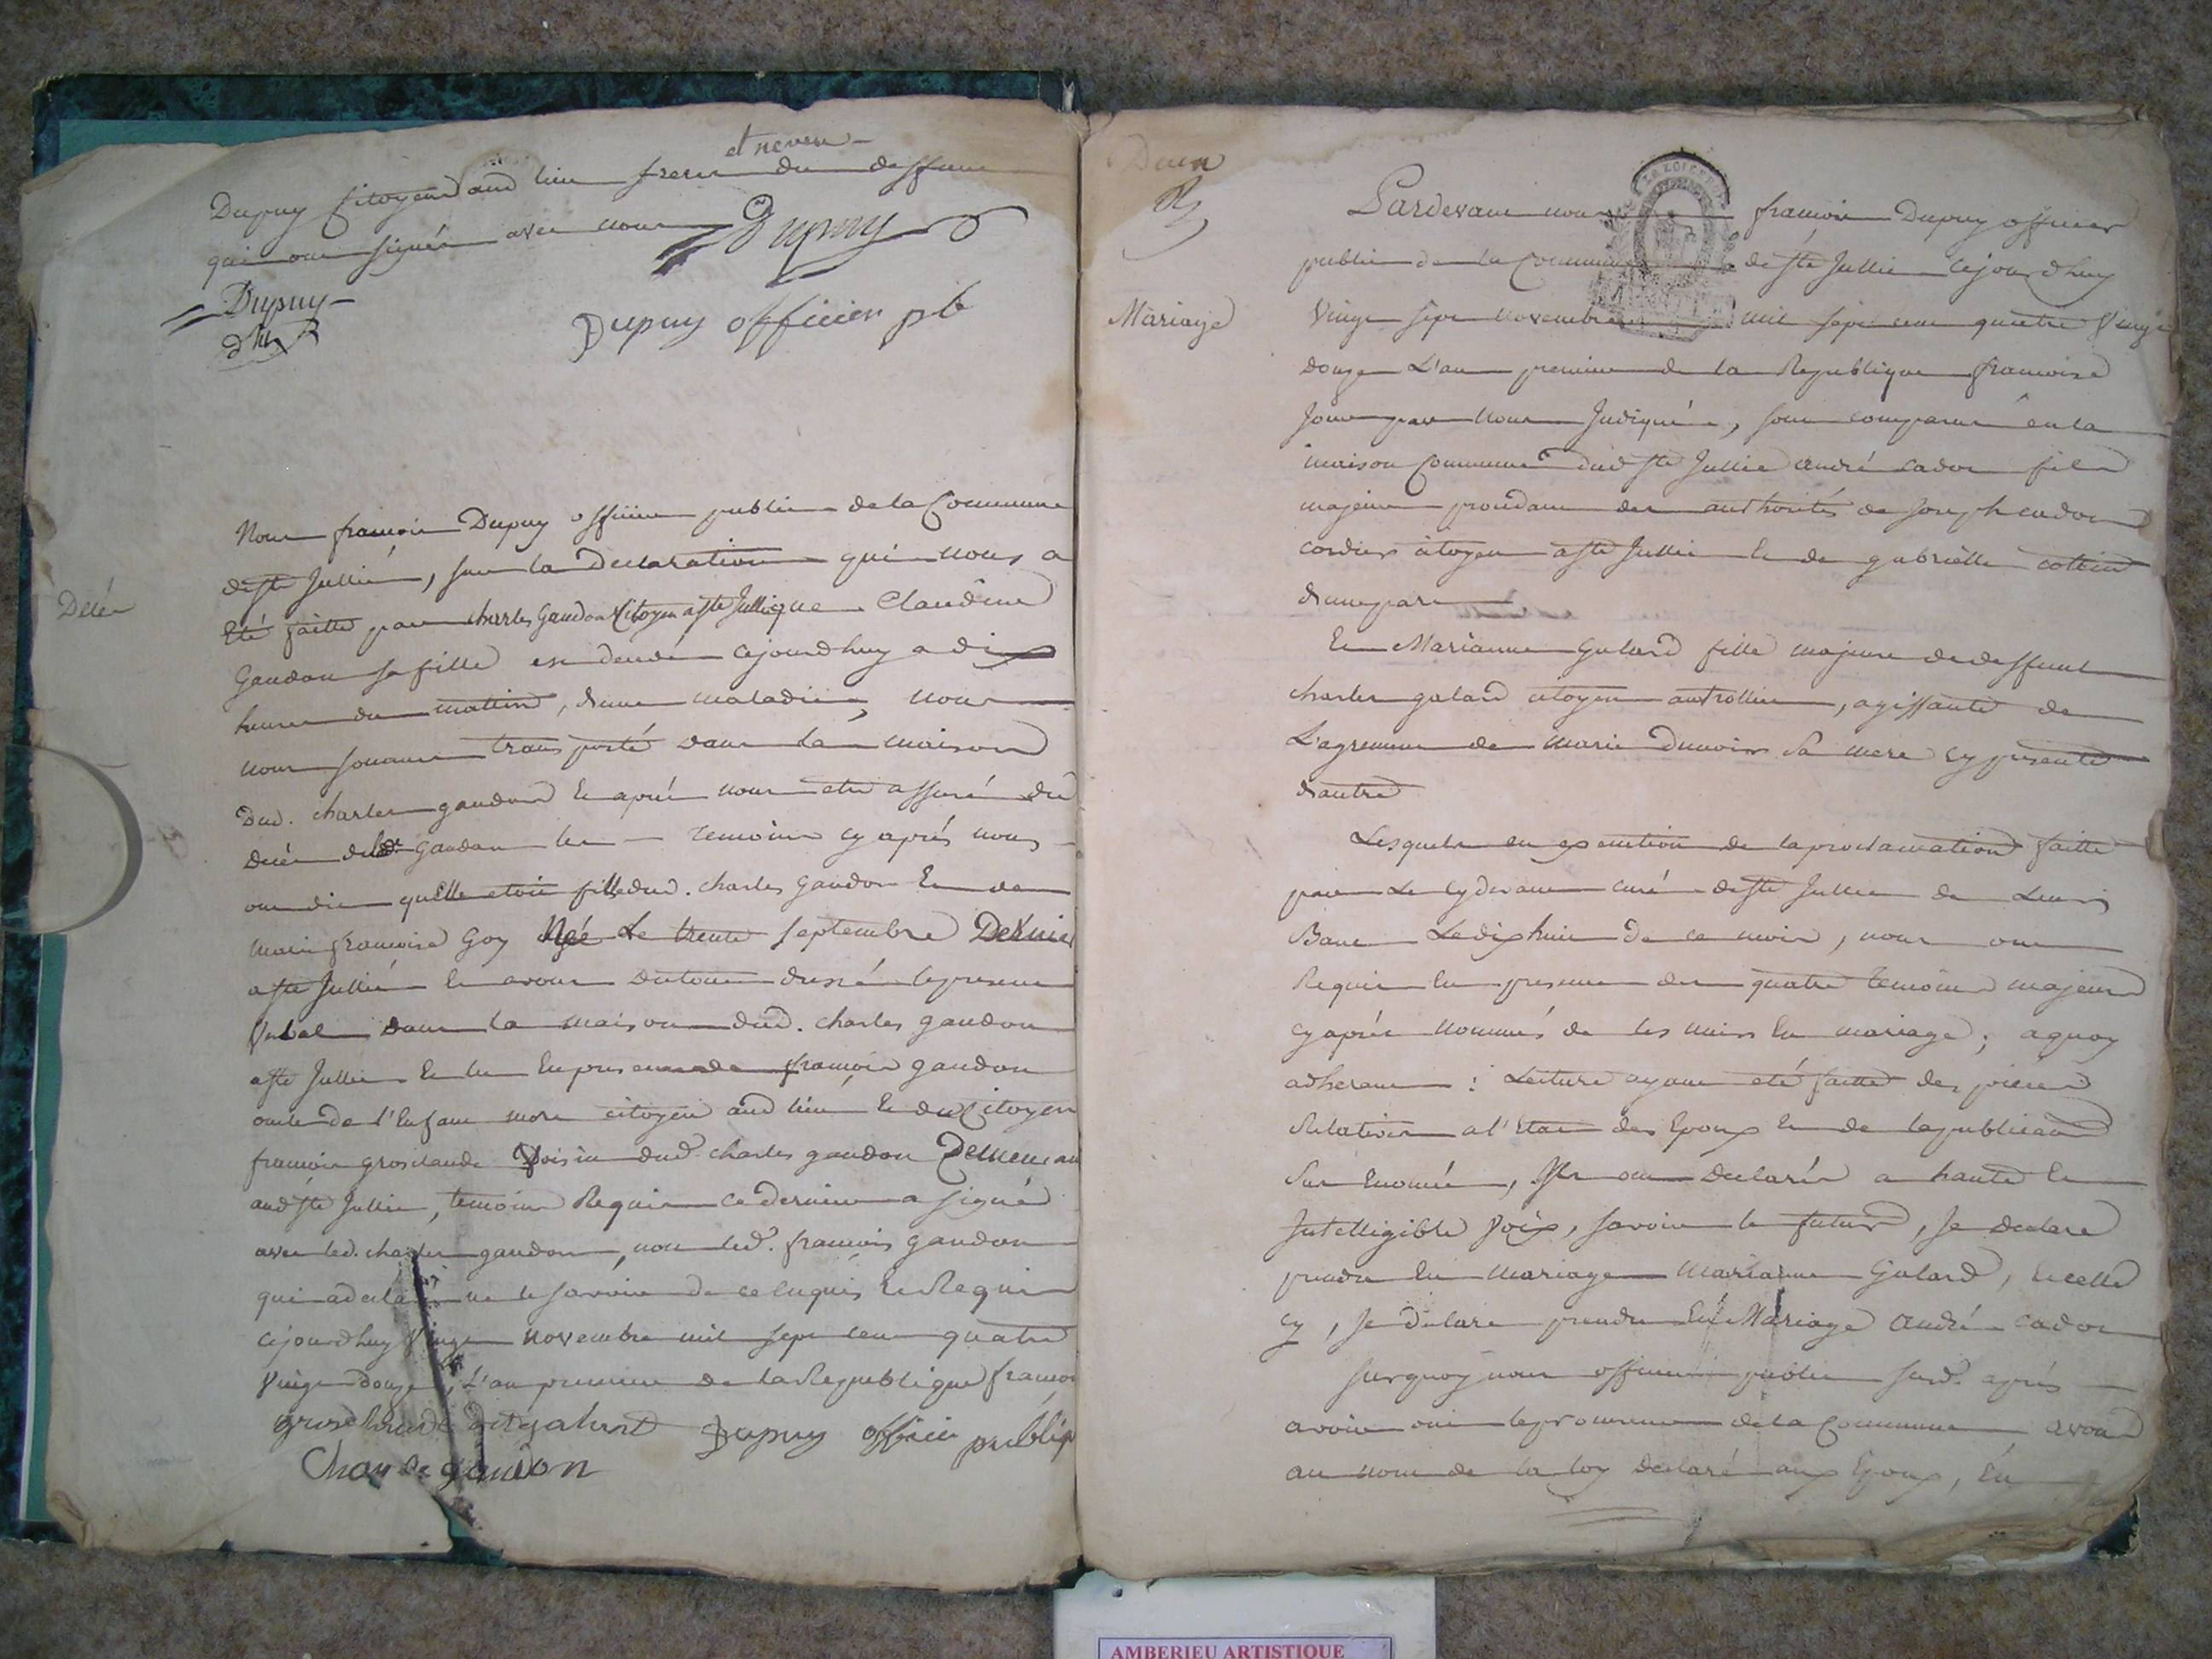 et neveu
Dupuy Citoyens aud lieu freres du deffunt
qui ont signés avec nous Dupuy
Dupuy
Dupuy officier pb
Nous francois Dupuy officier public de la Commune
de ste Jullie, sur la Declaration qui nous a
Décés
Eté faitte par charles Gaudon Citoyen a ste Jullie que Claudine
Gaudon sa fille est decedé cejourdhuy a dix
heures du mattin, d'une maladie, nous
nous sommes transporté dans la maison
Dud. charles gaudon et aprés nous etre assuré du
decés de lad. Gaudon les temoins cy aprés nous
ont dit quelle etoit fille dud. charles Gaudon Et de
marie francoise Goy Née Le trente septembre Dernier
a ste Jullie et avons du tout dressé le present
verbal dans la maison dud. charles gaudon
a ste Jullie Et lu En presence de francois gaudon
oncle de l'Enfant mort citoyen aud lieu Et du Citoyen
francois grosclaude Voisin dud. charles gaudon Demeurant
aud ste Jullie, temoins Requis ce dernier a signé
avec led. charles gaudon, non led. francois Gaudon
qui a declaré ne le savoir de ce Enquis Et Requis
cejourdhuy Vingt novembre mil sept cent quatre
Vingt douze, L'an premier de la Republique francoi
Dupuy officié public
Charle gaudon
Pardevant nous francois Dupuy officier
public de la Commune de ste Jullie cejourdhuy
Mariage
Vingt sept novembre mil sept cent quatre Vingt
douze L'an premier de la Republique francoise
Jour par nous Indiqué, sont comparus en la
maison Commune dud ste Jullie andré cador fils
majeur procedant des authorités de Joseph cador
cordier citoyen a ste Jullie Et de gabrielle cottin
d'une part
Et Marianne Galard fille majeure de deffunt
charles galard citoyen, agissante de
L'agrement de marie Dumoin Sa mere cy presente
d'autre
Lesquels en execution de la proclamation faitte
par Le cydevant curé de ste Jullie de Leurs
Bans Le dix huit de ce mois, nous ont
Requis En presence des quatre temoins majeurs
cy aprés nommés de les unir En mariage; a quoy
adherant: Lecture ayant eté faitte des piéces
Relatives a l'Etat des Epoux Et de la publication
Sus Enoncée, Ils ont declarés a haute Et
Intelligible Voix, savoir le futur, se declare
prendre En mariage Marianne Galard, Et celle
cy, se declare prendre En Mariage André cador
Surquoy nous officier public susd. aprés
avoir oui le procureur de la Commune avons
au nom de la loy declaré aux Epoux, En
AMBERIEU ARTISTIQUE